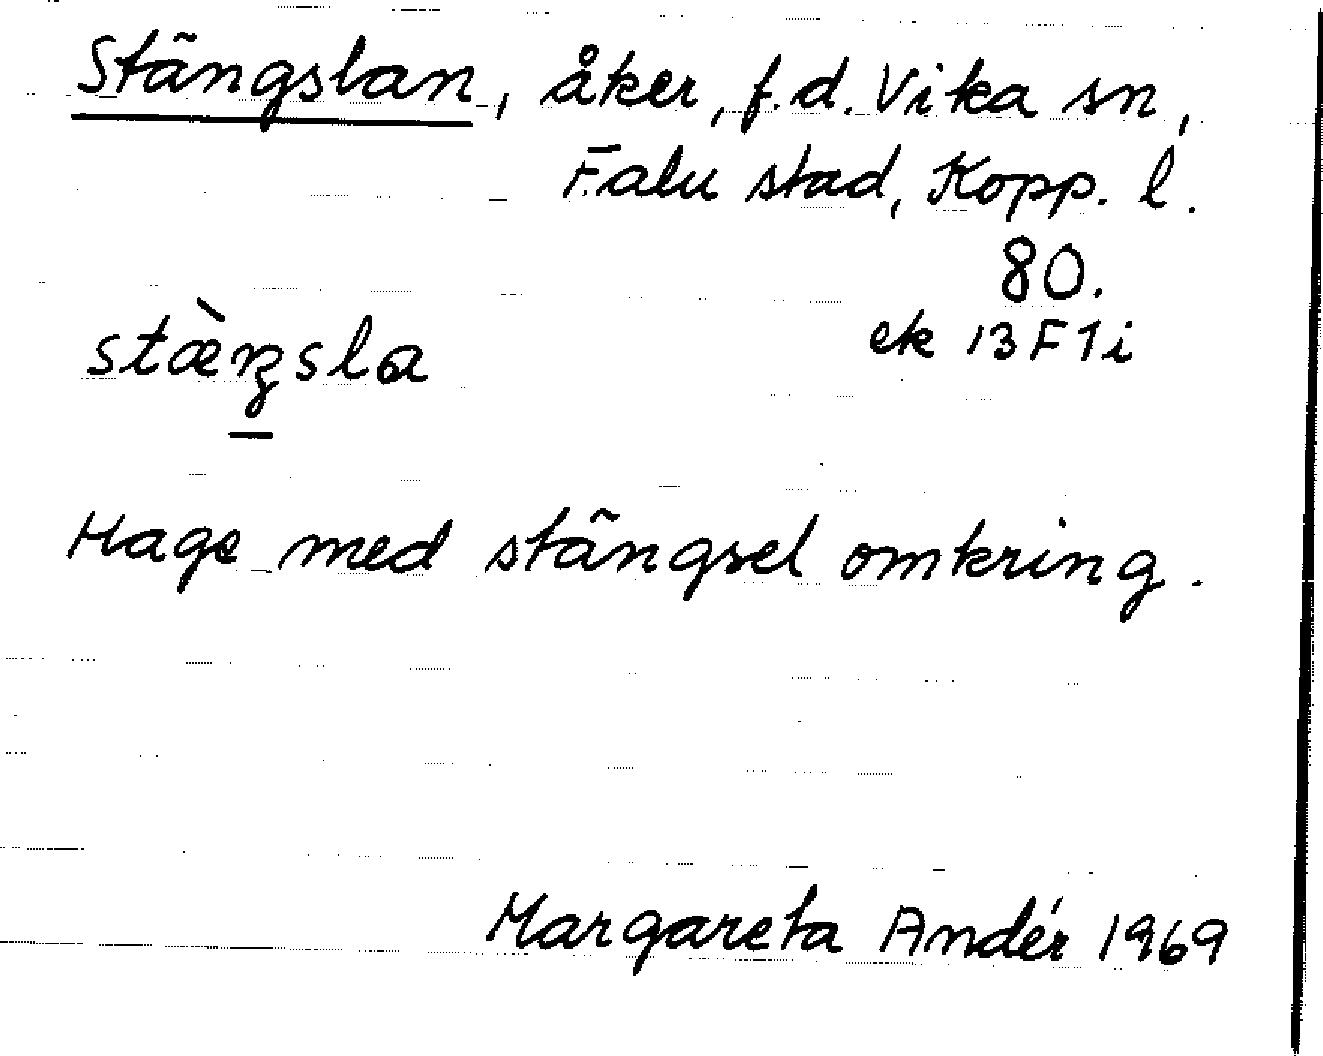 Stängslan, åker, f.d. Vika sn,
Falu stad, Kopp. l.
80.
ek 13F1i
stæ̀ŋsla
Hage med stängsel omkring.
Margareta Andér 1969